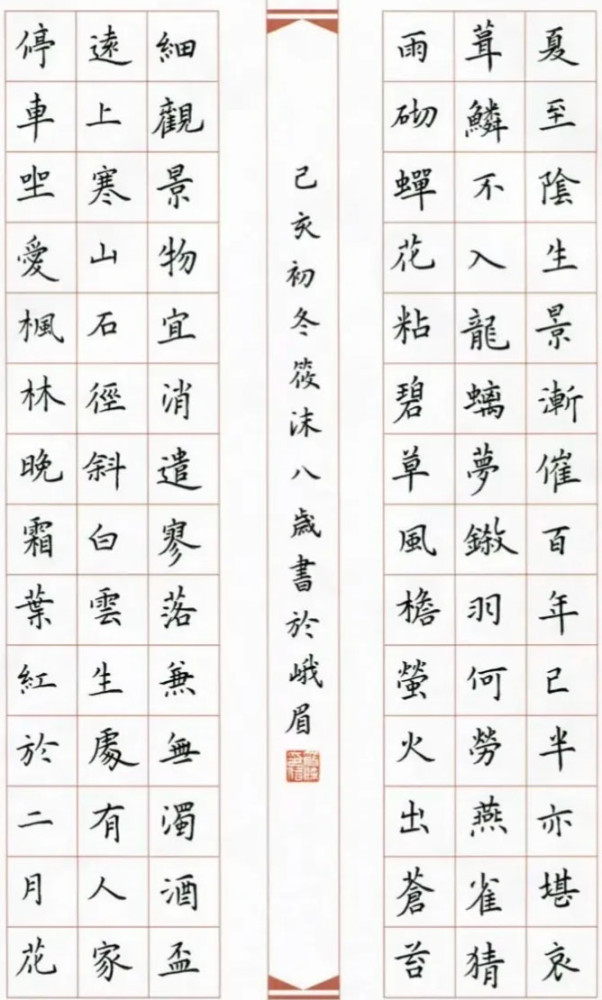 夏至陰生景漸催百年已半亦堪哀
葺鱗不入龍螭夢鎩羽何勞燕雀猜
雨砌蟬花粘碧草風檐螢火出蒼苔
己亥初冬筱沫八歲書於峨眉
細觀景物宜消遣寥落兼無濁酒盃
遠上寒山石徑斜白雲生處有人家
停車坐愛楓林晚霜葉紅於二月花